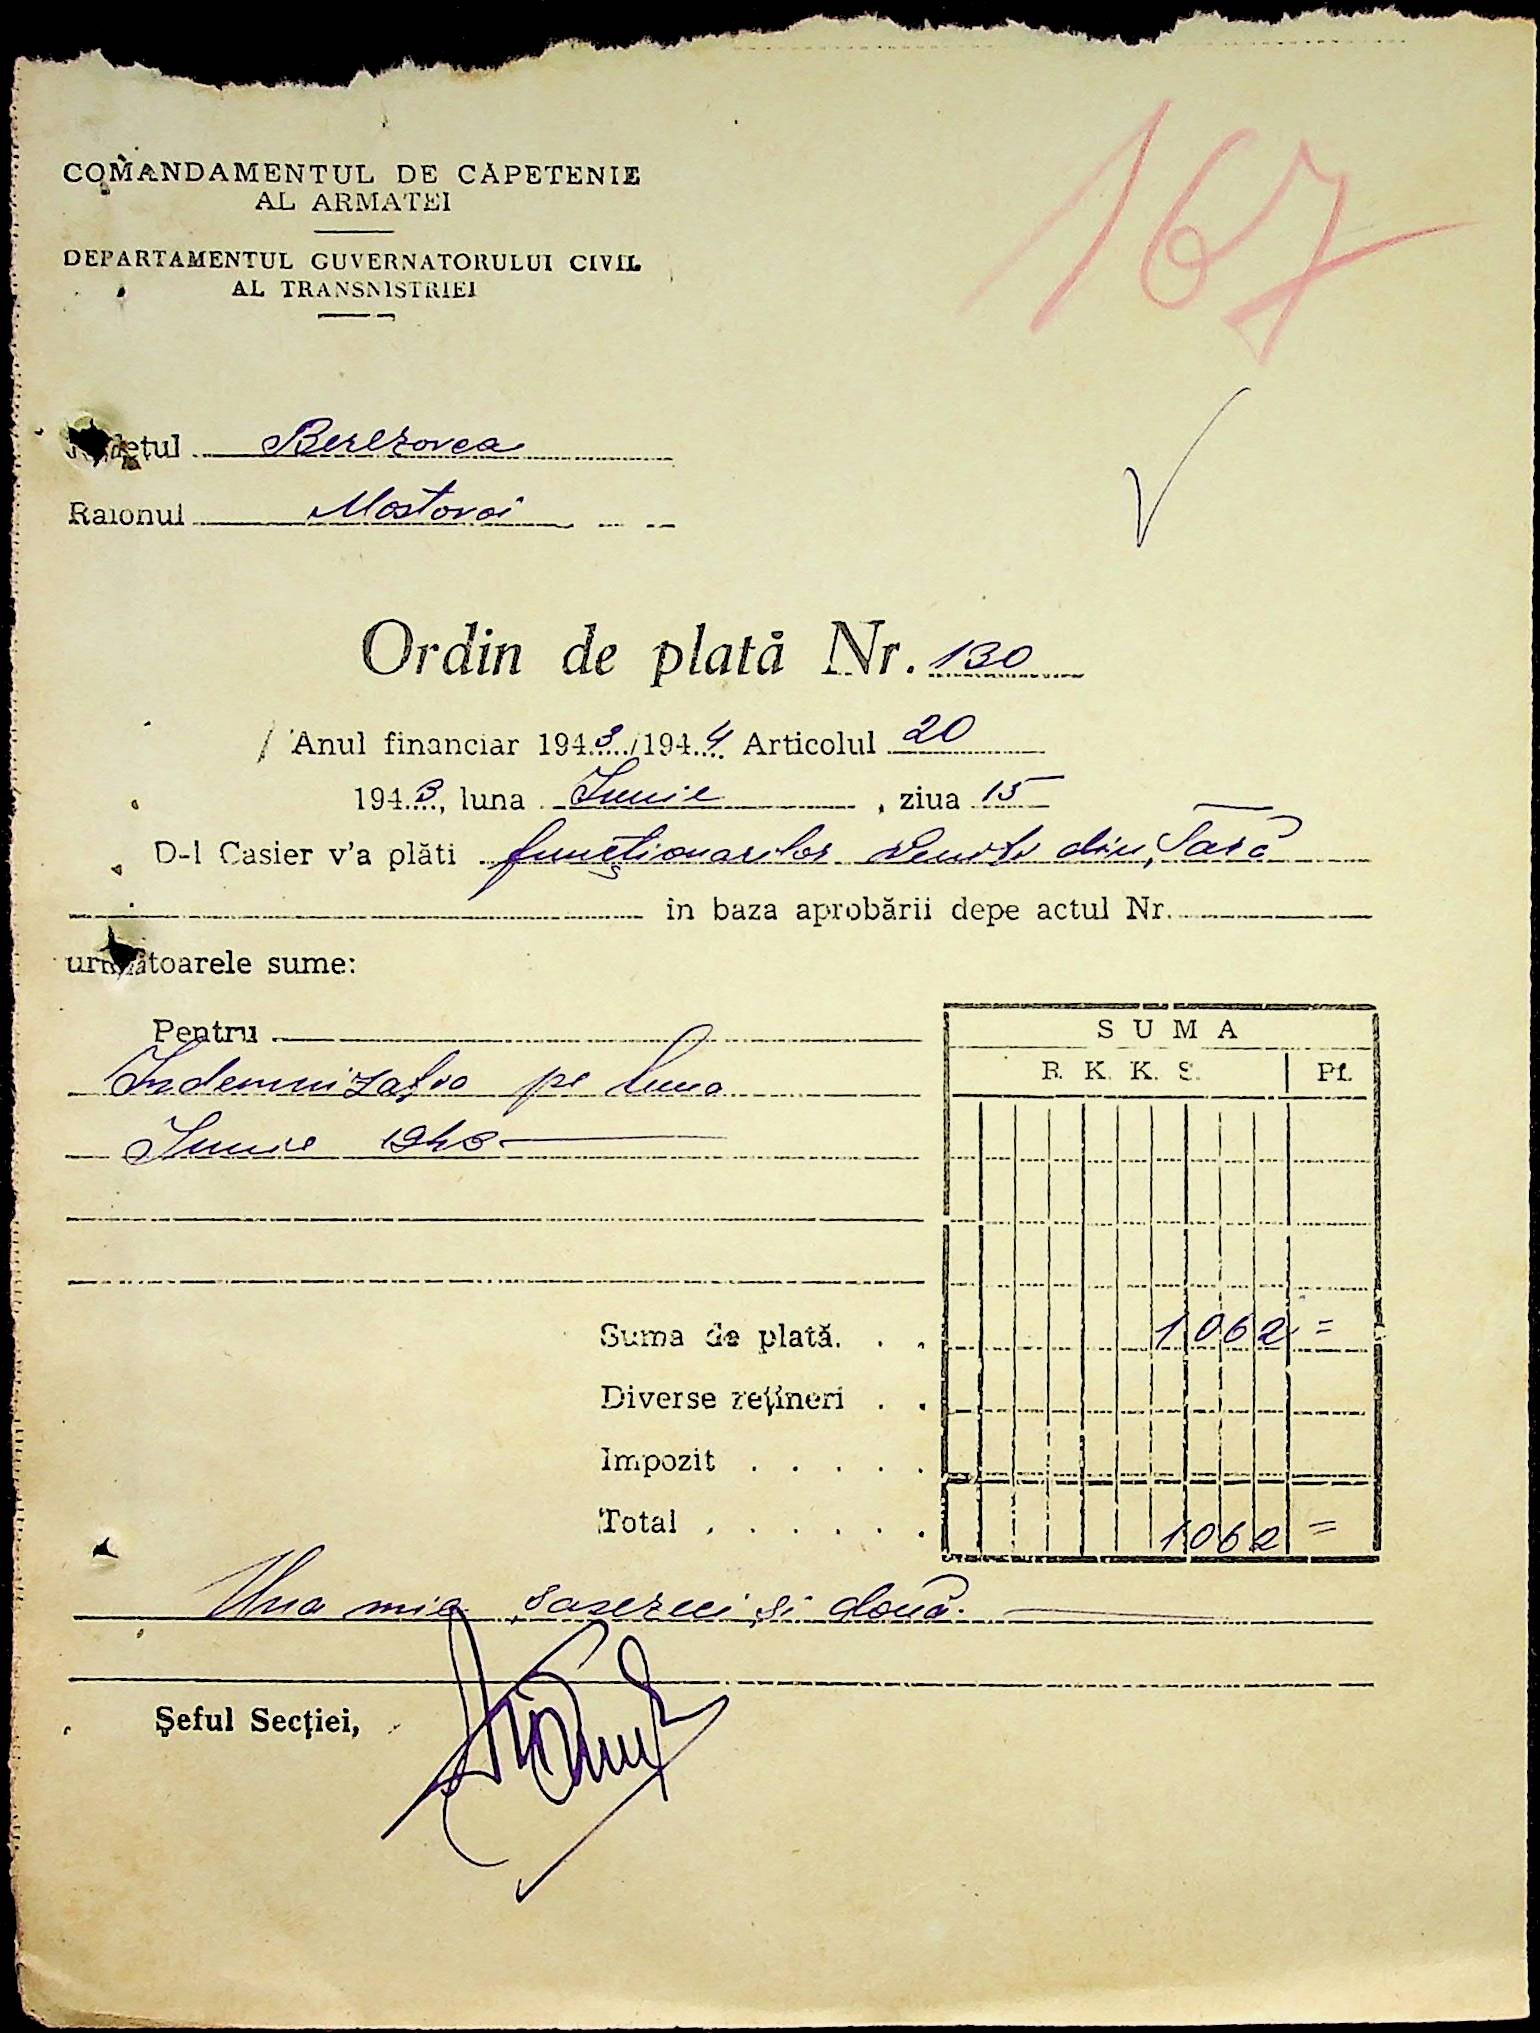 COMANDAMENTUL DE CĂPETENIE
AL ARMATEI
DEPARTAMENTUL GUVERNATORULUI CIVIL
AL TRANSNISTRIEI
167
Județul Berezovca
Raionul Mostovoi
Ordin de plată Nr. 130
Anul financiar 1943/1944 Articolul 20
1943, luna Iunie, ziua 15
D-l Casier v'a plăti funcționarilor veniti din Țară
in baza aprobării depe actul Nr.
următoarele sume:
Pentru
Indemnizatia pe luna
Iunie 1943
SUMA
R. K. K. S. Pf.
Suma de plată. . . 1062 =
Diverse rețineri . .
Impozit . . . . .
Total . . . . . . 1062 =
Una mie șasezeci și două.
Șeful Secției,